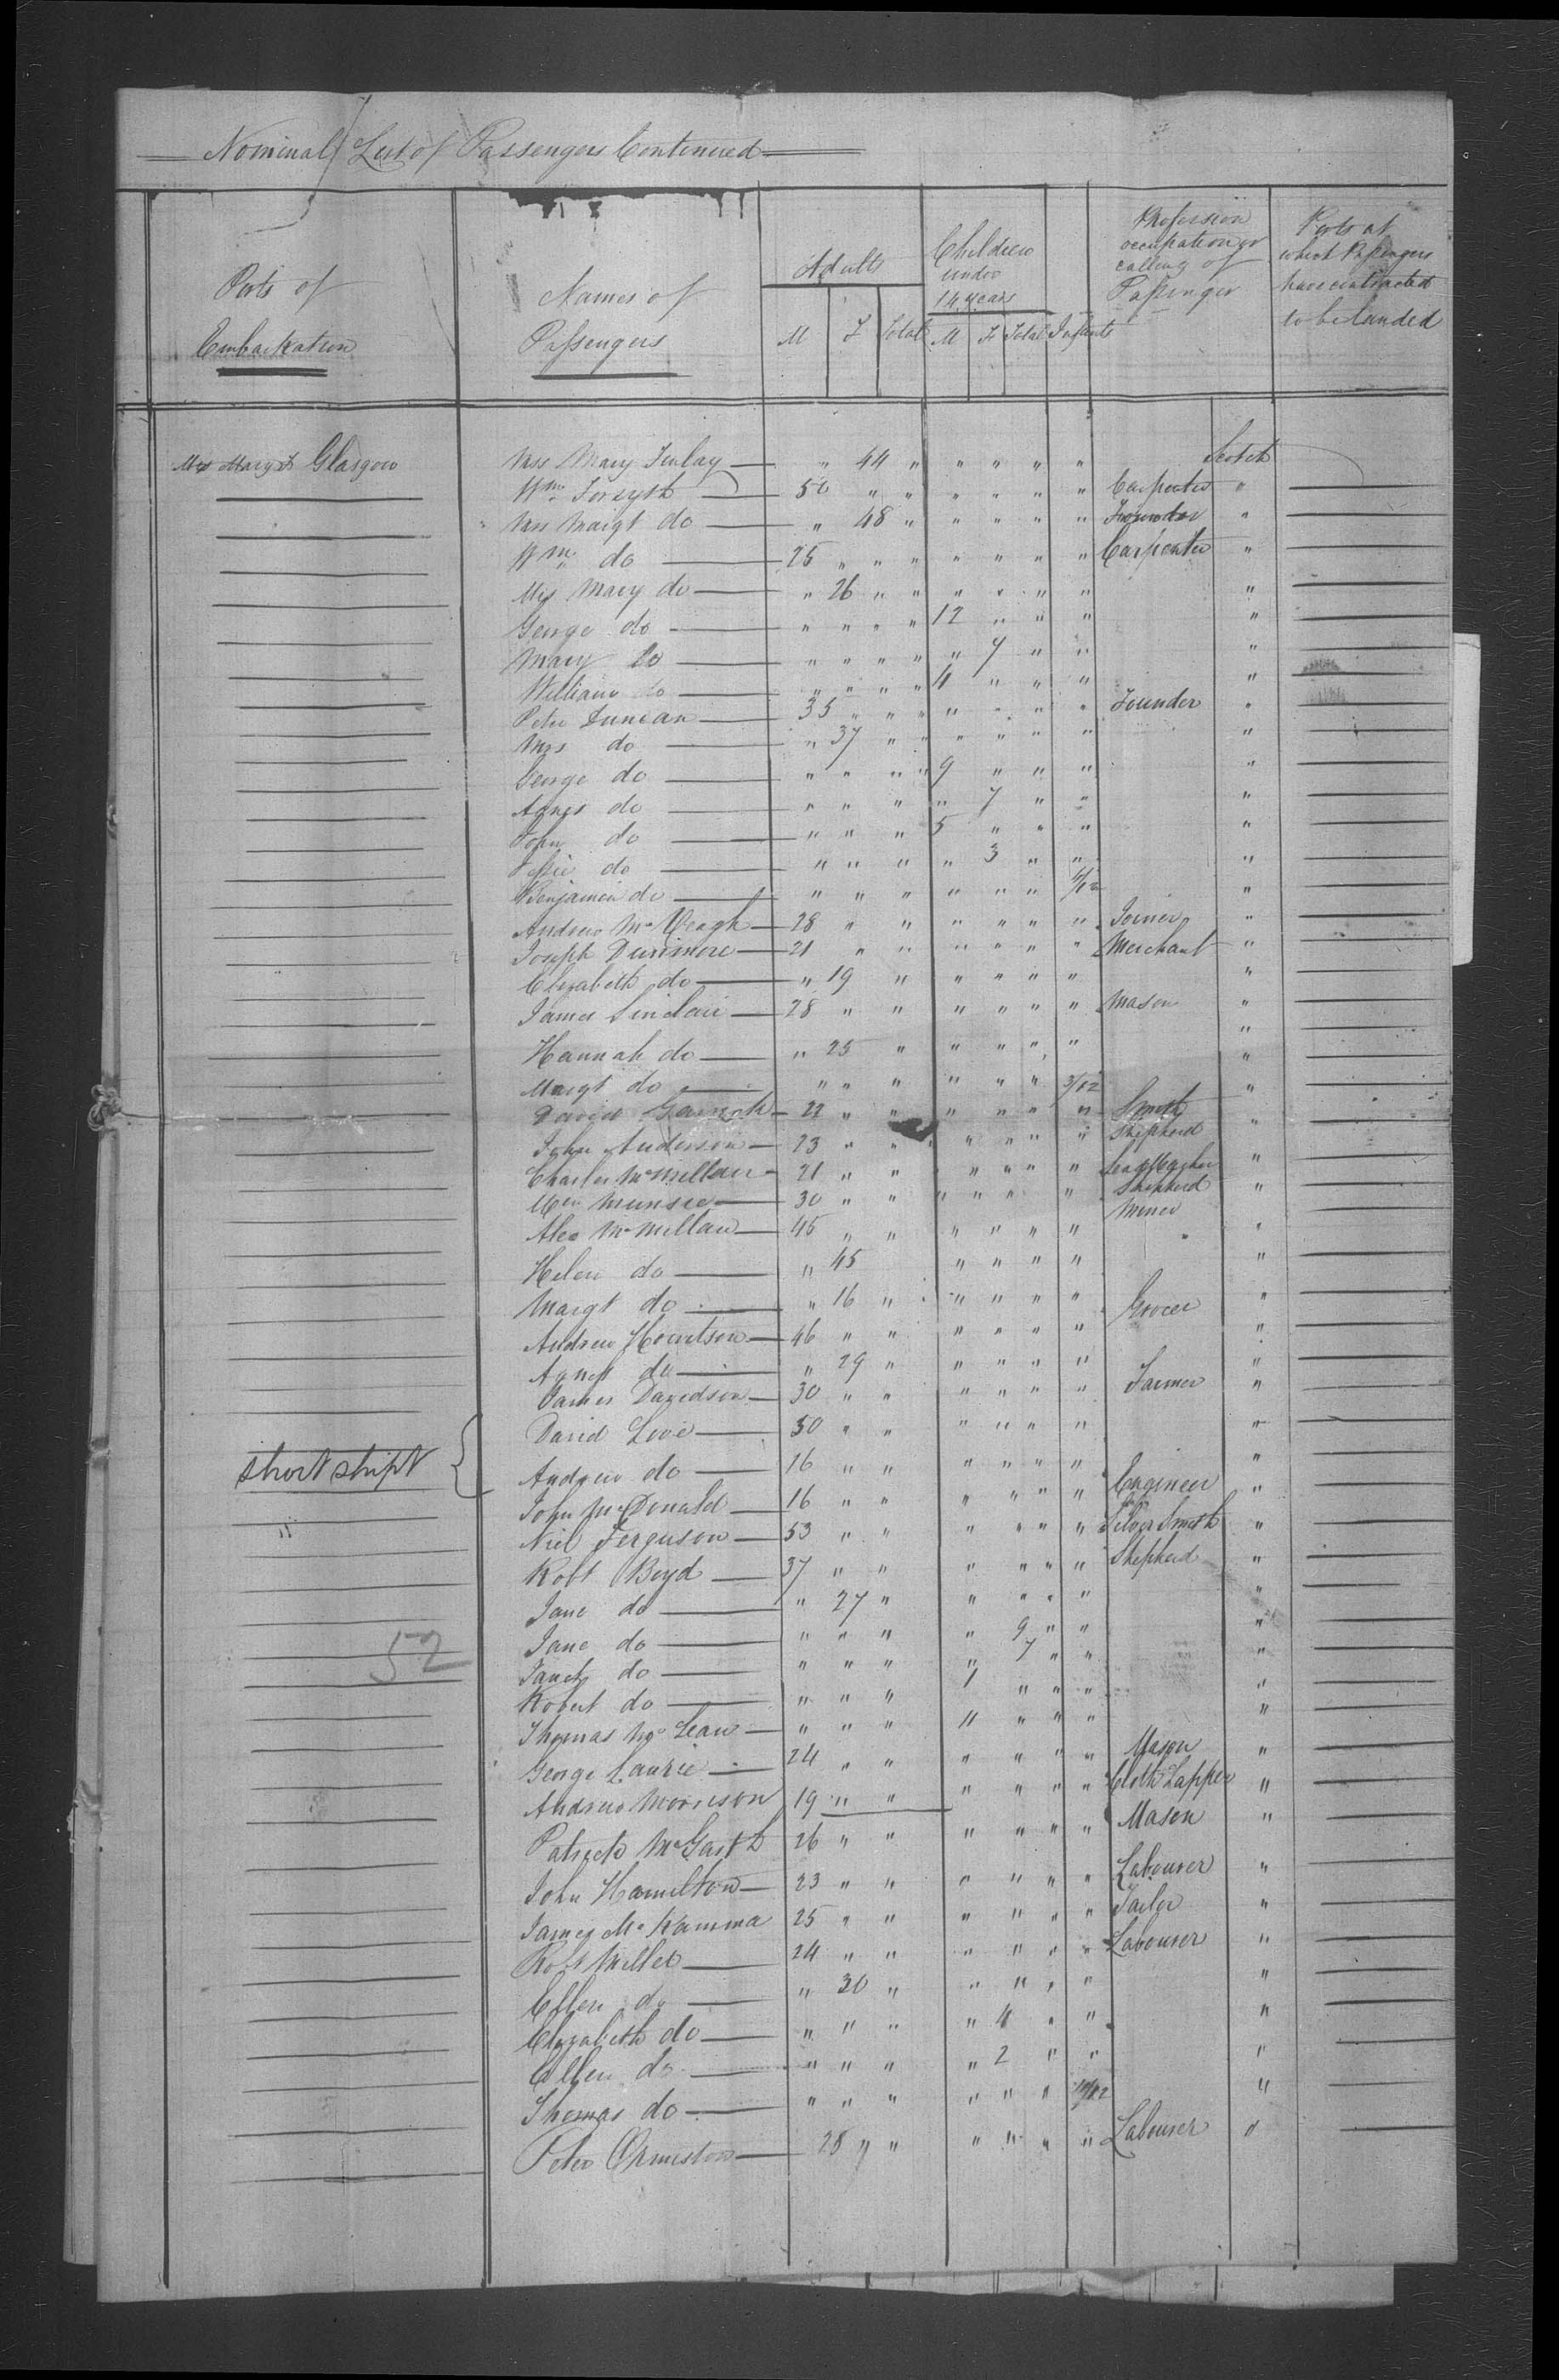 Nominal List of Passengers Continued
Ports of Embarkation | Names of Passengers | Adults M F Total | Children under 14 years M F Total | Infants | Profession occupation or calling of Passenger | Ports at which Passengers have contracted to be landed
Glasgow Mrs Mary Finlay " 44 " " " " " Scotch
Wm Forsyth 50 " " " " " " Carpenter "
Mrs Margt do " 48 " " " " " "
Wm do 25 " " " " " " " Carpenter "
Mrs Mary do " 26 " " " " " " "
George do " " " " 12 " " " "
Mary do " " " " " 7 " " "
William do " " " " 4 " " " "
Peter Duncan 35 " " " " " " " Founder "
Mrs do " 37 " " " " " " "
George do " " " " 9 " " " "
Agnes do " " " " 7 " " "
John do " " " 5 " " " "
Jessie do " " " " 3 " " "
Benjamin do " " " " " " "
Andrew Mc 28 " " " " " " Joiner "
Joseph Dunmore 21 " " " " " " Merchant "
Elizabeth do " 19 " " " " " "
James Sinclair 28 " " " " " " Mason "
Hannah do " 25 " " " " " "
Margt do " " " " " " 3/12 "
David 22 " " " " " " Smith "
John Anderson 23 " " " " " " Shepherd "
Charles McMillan 21 " " " " " " "
Munsie 30 " " " " " " Shepherd "
Alex McMillan 45 " " " " " " Miner "
Helen do " 45 " " " " "
Margt do " 16 " " " " " "
Andrew 46 " " " " " " Grocer "
Agness do " 29 " " " " " "
James Davidson 30 " " " " " " Farmer "
David Love 50 " " " " " " "
short shipt Andrew do 16 " " " " " " "
John McDonald 16 " " " " " " Engineer "
" Niel Ferguson 53 " " " " " " Silver Smith "
Robt Boyd 37 " " " " " " Shepherd "
Jane do " 27 " " " " " "
Jane do " " " " 9 " " "
52 Janet do " " " " 7 " " "
Robert do " " " 1 " " " "
Thomas McLean " " " 11 " " " "
George Laurie 24 " " " " " " Mason "
Andrew Morrison 19 " " " " " " Cloth Lapper "
Patrick 26 " " " " " " Mason "
John Hamilton 23 " " " " " " Labourer "
James 25 " " " " " " Tailor "
Robt Miller 24 " " " " " " Labourer "
Ellen do " 30 " " " " " "
Elizabeth do " " " " 4 " " "
Ellen do " " " " 2 " " "
Thomas do " " " " " " "
Peter Ormiston 28 " " " " " " Labourer "